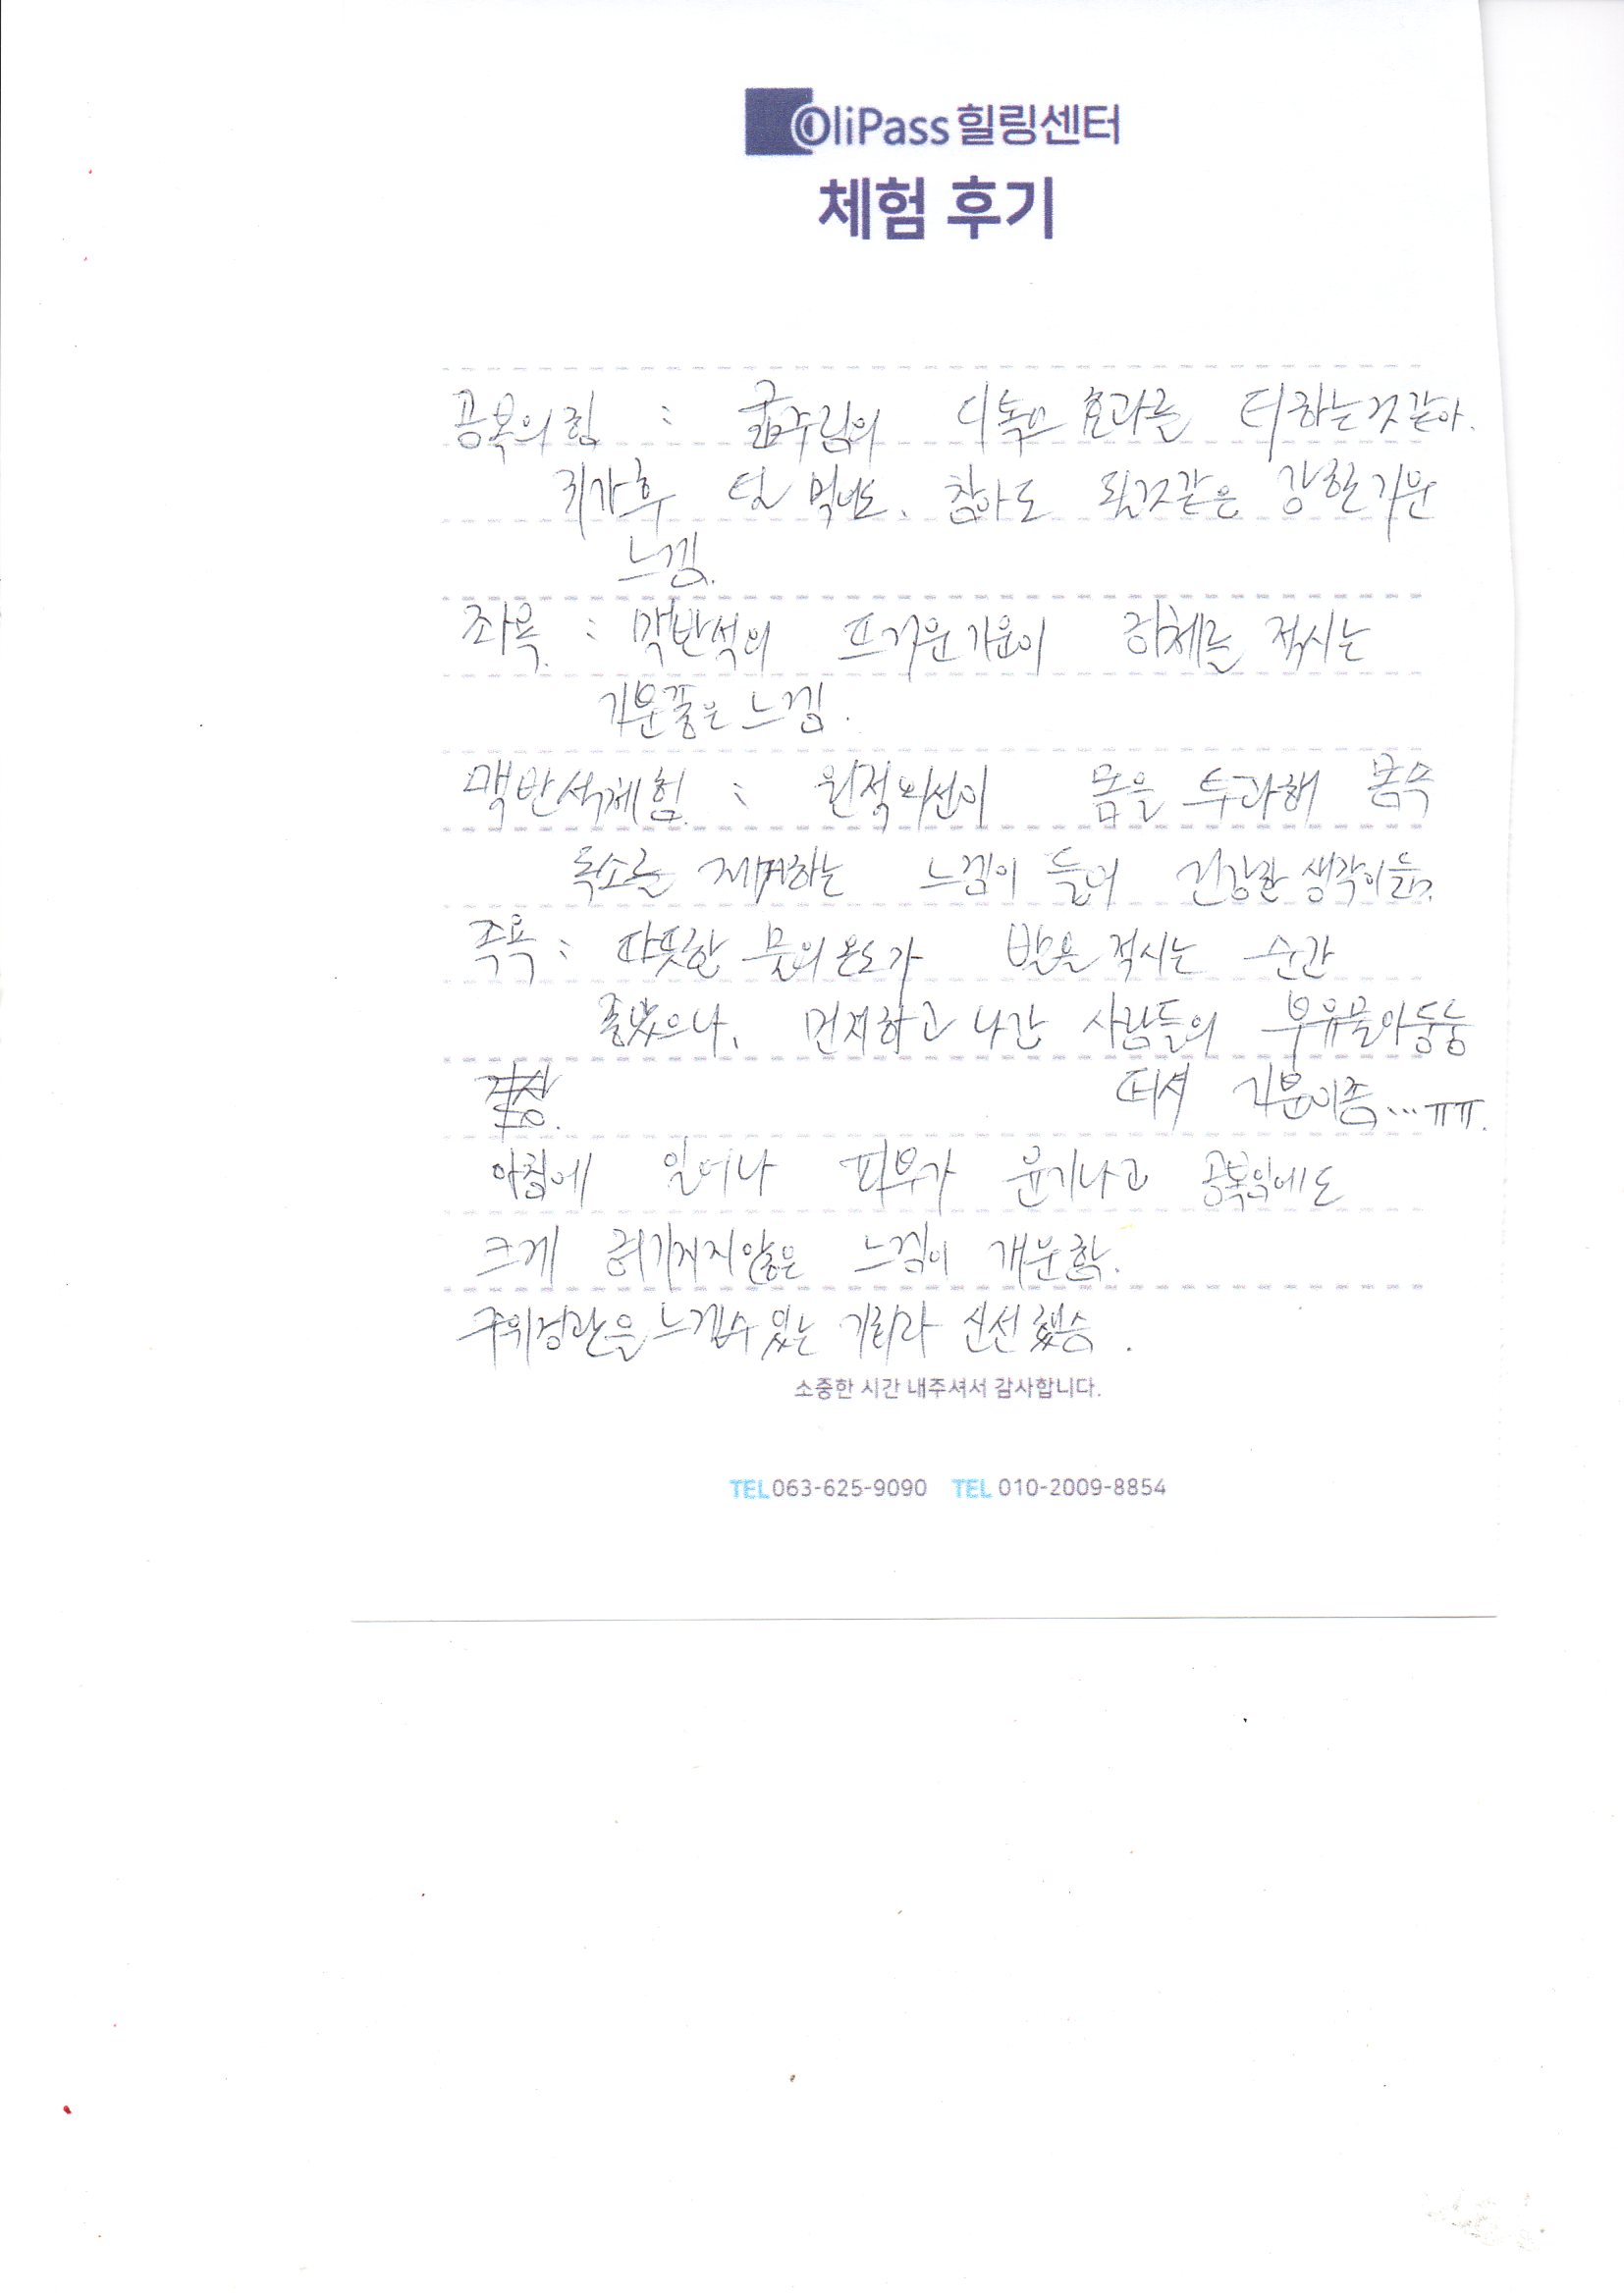 OliPass 힐링센터
체험 후기
공복의 힘 : 굶주림의 디톡스 효과를 더하는것같아.
귀가후 덜 먹어도. 참아도 될것같은 강한 기운
느낌.
좌욕 : 맥반석의 뜨거운 기운이 하체를 적시는
기분좋은 느낌.
맥반석체험 : 원적외선이 몸을 투과해 몸속
독소를 제거하는 느낌이 들어 건강한 생각이듦.
족욕 : 따뜻한 물의 온도가 발을 적시는 순간
좋았으나, 먼저하고 나간 사람들의 부유물이둥둥
떠셔 기분이좀...ㅠㅠ.
아침에 일어나 피부가 윤기나고 공복임에도
크게 허기지지않은 느낌이 개운함.
주위경관을 느낄수 있는 거리라 신선했슴.
소중한 시간 내주셔서 감사합니다.
TEL 063-625-9090 TEL 010-2009-8854